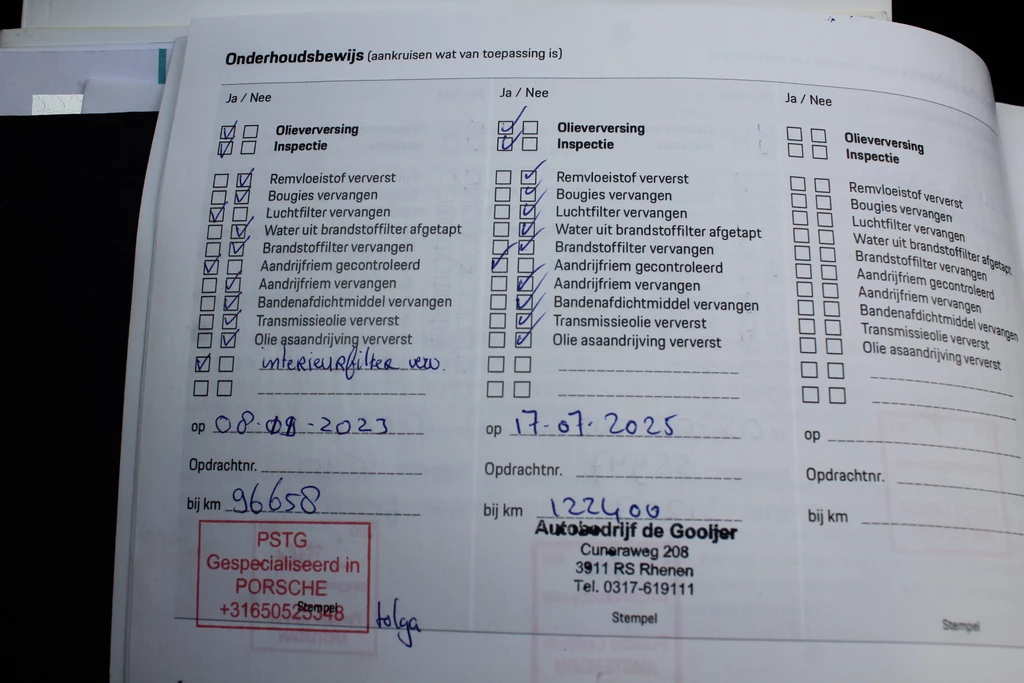 Onderhoudsbewijs (aankruisen wat van toepassing is)
Ja / Nee
Olieverversing
Inspectie
Remvloeistof ververst
Bougies vervangen
Luchtfilter vervangen
Water uit brandstoffilter afgetapt
Brandstoffilter vervangen
Aandrijfriem gecontroleerd
Aandrijfriem vervangen
Bandenafdichtmiddel vervangen
Transmissieolie ververst
Olie asaandrijving ververst
interieurfilter verv.
op 08-08-2023
Opdrachtnr.
bij km 96658
PSTG
Gespecialiseerd in
PORSCHE
Stempel
tolga
Ja / Nee
Olieverversing
Inspectie
Remvloeistof ververst
Bougies vervangen
Luchtfilter vervangen
Water uit brandstoffilter afgetapt
Brandstoffilter vervangen
Aandrijfriem gecontroleerd
Aandrijfriem vervangen
Bandenafdichtmiddel vervangen
Transmissieolie ververst
Olie asaandrijving ververst
op 17-07-2025
Opdrachtnr.
bij km 122400
Autobedrijf de Gooijer
Cuneraweg 208
3911 RS Rhenen
Tel. 0317-619111
Stempel
Ja / Nee
Olieverversing
Inspectie
Remvloeistof ververst
Bougies vervangen
Luchtfilter vervangen
Water uit brandstoffilter afgetapt
Brandstoffilter vervangen
Aandrijfriem gecontroleerd
Aandrijfriem vervangen
Bandenafdichtmiddel vervangen
Transmissieolie ververst
Olie asaandrijving ververst
op
Opdrachtnr.
bij km
Stempel